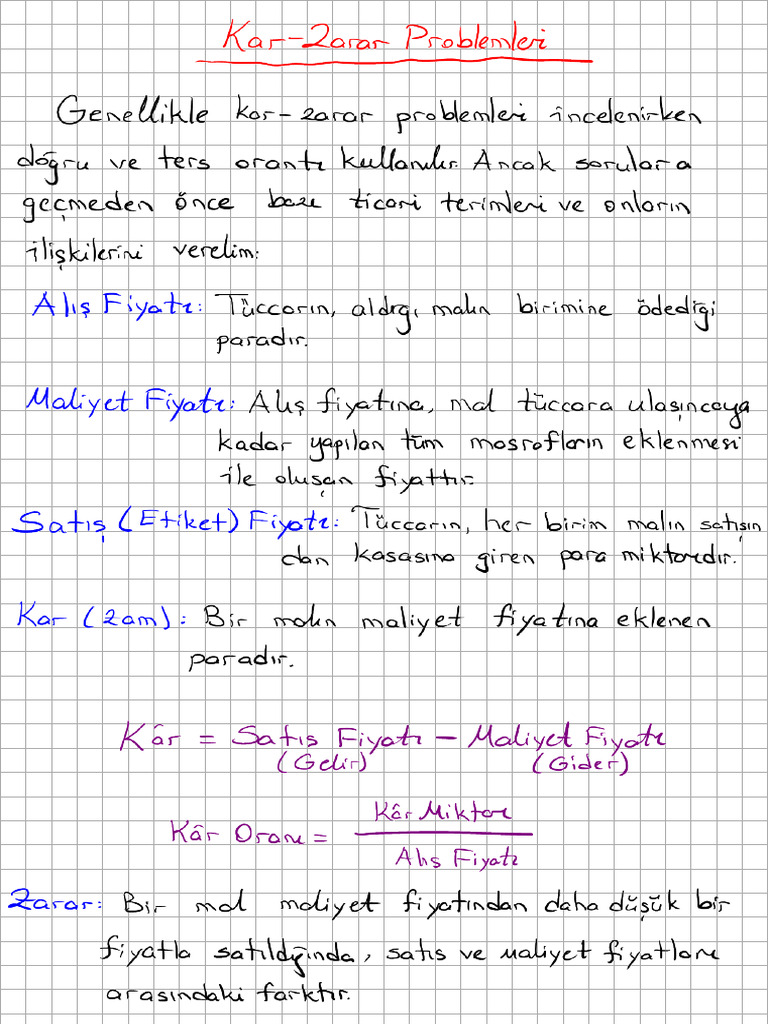 Kar-Zarar Problemleri
Genellikle kar-zarar problemleri incelenirken
doğru ve ters orantı kullanılır. Ancak sorulara
geçmeden önce bazı ticari terimleri ve onların
ilişkilerini verelim:
Alış Fiyatı: Tüccarın, aldığı malın birimine ödediği
paradır.
Maliyet Fiyatı: Alış fiyatına, mal tüccara ulaşıncaya
kadar yapılan tüm masrafların eklenmesi
ile oluşan fiyattır.
Satış (Etiket) Fiyatı: Tüccarın, her birim malın satışın
dan kasasına giren para miktarıdır.
Kar (Zam): Bir malın maliyet fiyatına eklenen
paradır.
Kâr = Satış Fiyatı - Maliyet Fiyatı
(Gelir) (Gider)
Kâr Oranı = Kâr Miktarı
Alış Fiyatı
Zarar: Bir mal maliyet fiyatından daha düşük bir
fiyatla satıldığında, satış ve maliyet fiyatları
arasındaki farktır.